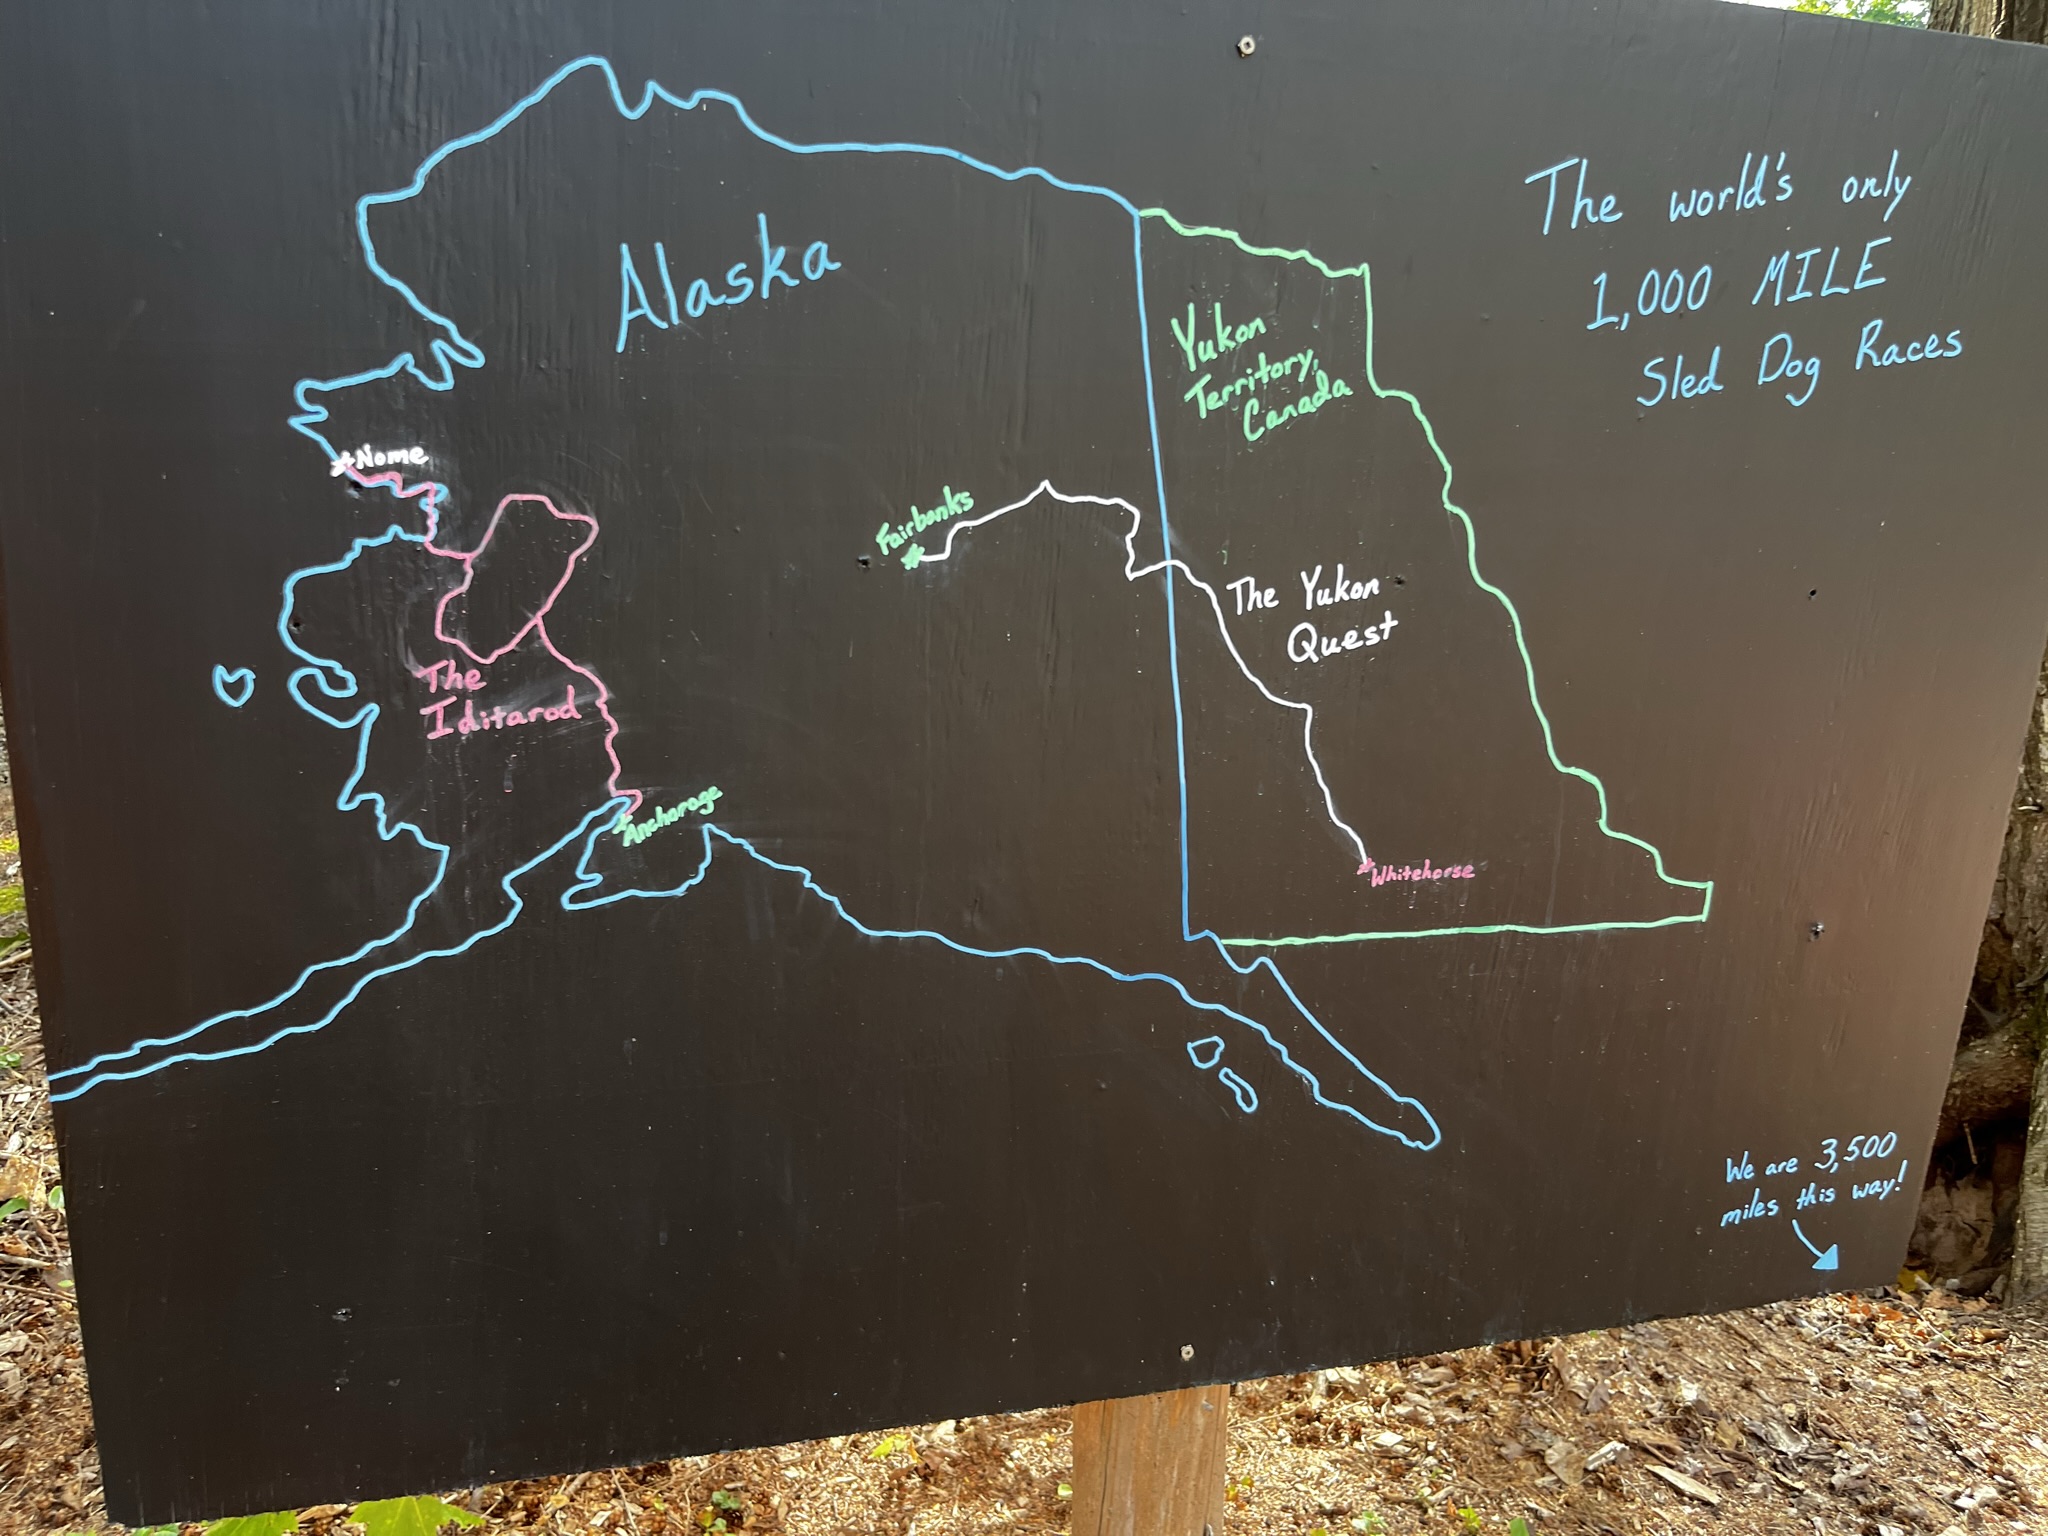 The world's only
1,000 MILE
Sled Dog Races
Alaska
Yukon
Territory,
Canada
Nome
Fairbanks
The Yukon
Quest
The
Iditarod
Anchorage
Whitehorse
We are 3,500
miles this way!